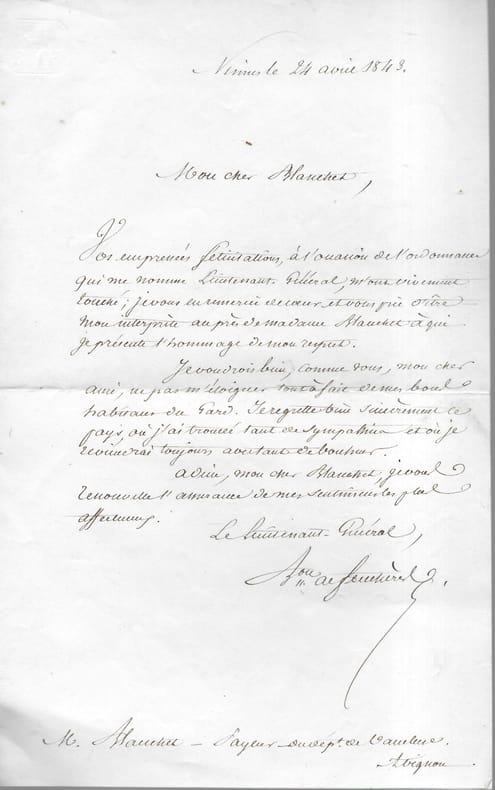 Nismes le 24 avril 1843.
Mon cher Blanchet,
Vos empressées félicitations, à l'occasion de l'ordonnance
qui me nomme Lieutenant-Général, m'ont vivement
touché; je vous en remercie de cœur et vous prie d'être
mon interprète auprès de madame Blanchet à qui
je présente l'hommage de mon respect.
Je voudrois bien, comme vous, mon cher
ami, ne pas m'éloigner tout à fait de mes bons
habitans du Gard. Je regrette bien sincèrement ce
pays, où j'ai trouvé tant de sympathie et où je
reviendrai toujours avec tant de bonheur.
adieu, mon cher Blanchet, je vous
renouvelle l'assurance de mes sentimens les plus
affectueux.
Le Lieutenant-Général,
Bon de feuchères.
M. Blanchet — Payeur du dépt. de Vaucluse.
Avignon.